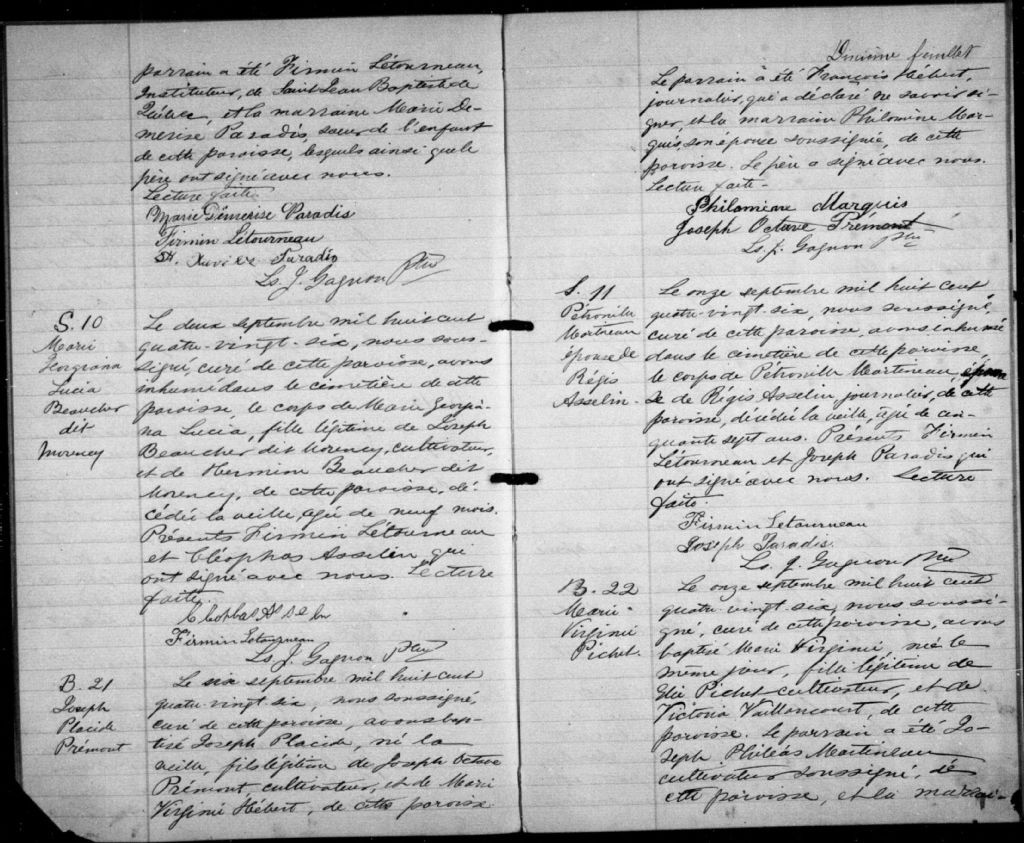 parrain a été Firmin Létourneau,
Instituteur, de Saint Jean Baptiste de
Québec, et la marraine Marie De-
merise Paradis, sœur de l'enfant
de cette paroisse, lesquels ainsi que le
père ont signé avec nous.
Lecture faite.
Marie Démerise Paradis
Firmin Letourneau
Xavier Paradis
Ls. J. Gagnon Ptre
S. 10
Marie
Georgiana
Lucia
Beaucher
dit
Morency
Le deux septembre mil huit cent
quatre-vingt-six, nous sous-
signé, curé de cette paroisse, avons
inhumé dans le cimetière de cette
paroisse, le corps de Marie Georgia-
na Lucia, fille légitime de Joseph
Beaucher dit Morency, cultivateur,
et de Hermine Beaucher dit
Morency, de cette paroisse, dé-
cédée la veille, agée de neuf mois.
Présents Firmin Létourneau
et Cléophas Asselin qui
ont signé avec nous. Lecture
faite.
Firmin Letourneau
Ls. J. Gagnon Ptre
B. 21
Joseph
Placide
Prémont
Le six septembre mil huit cent
quatre-vingt six, nous soussigné,
curé de cette paroisse, avons bap-
tisé Joseph Placide, né la
veille, fils légitime de Joseph Octave
Prémont, cultivateur, et de Marie
Virginie Hébert, de cette paroisse
feuillet
Le parrain a été François Hébert,
journalier, qui a déclaré ne savoir si-
gner, et la marraine Philomène Mar-
quis, son épouse soussignée, de cette
paroisse. Le père a signé avec nous.
Lecture faite-
Philomène Marquis
Joseph Octave Prémont
Ls. J. Gagnon Ptre
S. 11
Pétronille
Martineau
épouse de
Régis
Asselin-
Le onze septembre mil huit cent
quatre-vingt-six, nous soussigné,
curé de cette paroisse, avons inhumé
dans le cimetière de cette paroisse,
le corps de Pétronille Martineau, épou
se de Régis Asselin journalier, de cette
paroisse, décédée la veille, agée de cin-
quante sept ans. Présents Firmin
Létourneau et Joseph Paradis qui
ont signé avec nous. Lecture
faite.
Firmin Letourneau
Joseph Paradis
Ls. J. Gagnon Ptre
B. 22
Marie-
Virginie
Pichet.
Le onze septembre mil huit cent
quatre-vingt six, nous soussi-
gné, curé de cette paroisse, avons
baptisé Marie Virginie, née le
même jour, fille légitime de
Pichet cultivateur, et de
Victoria Vaillancourt, de cette
paroisse. Le parrain a été Jo-
seph Philéas Martineau
cultivateur soussigné, de
cette paroisse, et la marrai-